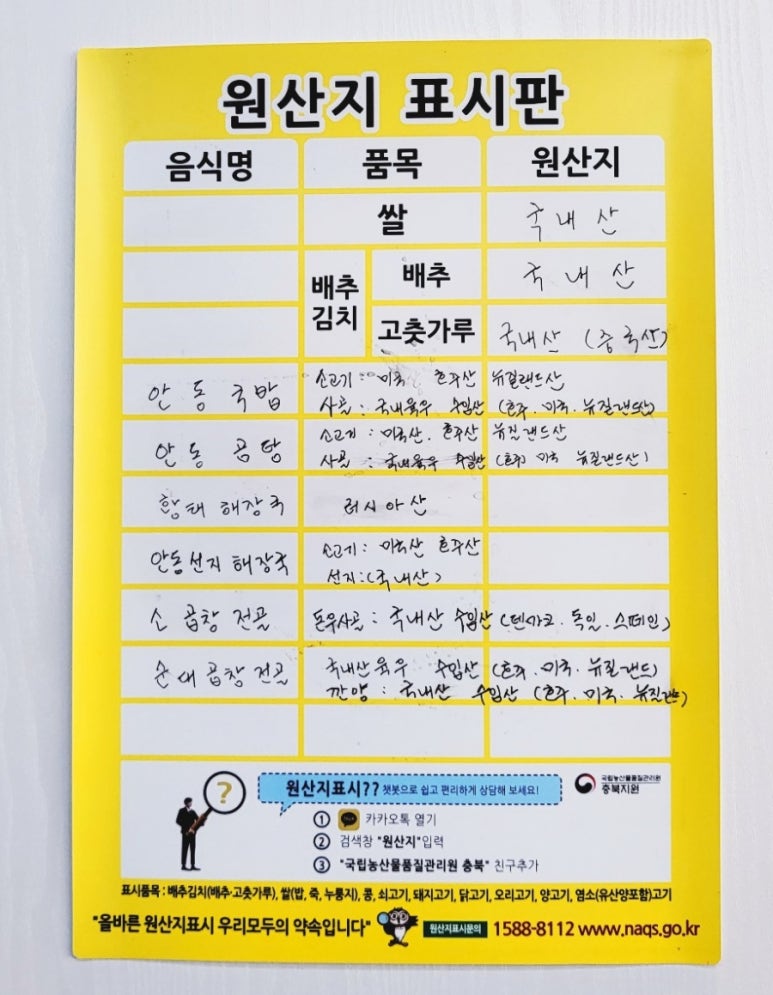 원산지 표시판
음식명 품목 원산지
쌀 국내산
배추김치 배추 국내산
고춧가루 국내산 (중국산)
안동국밥 소고기 : 미국 호주산 뉴질랜드산
사골 : 국내육우 수입산 (호주. 미국. 뉴질랜드산)
안동 곰탕 소고기 : 미국산. 호주산 뉴질랜드산
사골 : 국내육우 수입산 (호주) 미국 뉴질랜드산)
황태 해장국 러시아산
안동선지 해장국 소고기 : 미국산 호주산
선지:(국내산)
소 곱창 전골 돈우사골 : 국내산 수입산 (덴마크. 독일. 스페인)
순대곱창전골 국내산육우 수입산 (호주. 미국. 뉴질랜드)
깐양 : 국내산 수입산 (호주. 미국. 뉴질랜드)
?
원산지표시?? 챗봇으로 쉽고 편리하게 상담해 보세요!
국립농산물품질관리원
충북지원
① 카카오톡 열기
② 검색창 "원산지"입력
③ "국립농산물품질관리원 충북" 친구추가
표시품목 : 배추김치(배추·고춧가루), 쌀(밥, 죽, 누룽지), 콩, 쇠고기, 돼지고기, 닭고기, 오리고기, 양고기, 염소(유산양포함)고기
"올바른 원산지표시 우리모두의 약속입니다" 원산지표시문의 1588-8112 www.naqs.go.kr